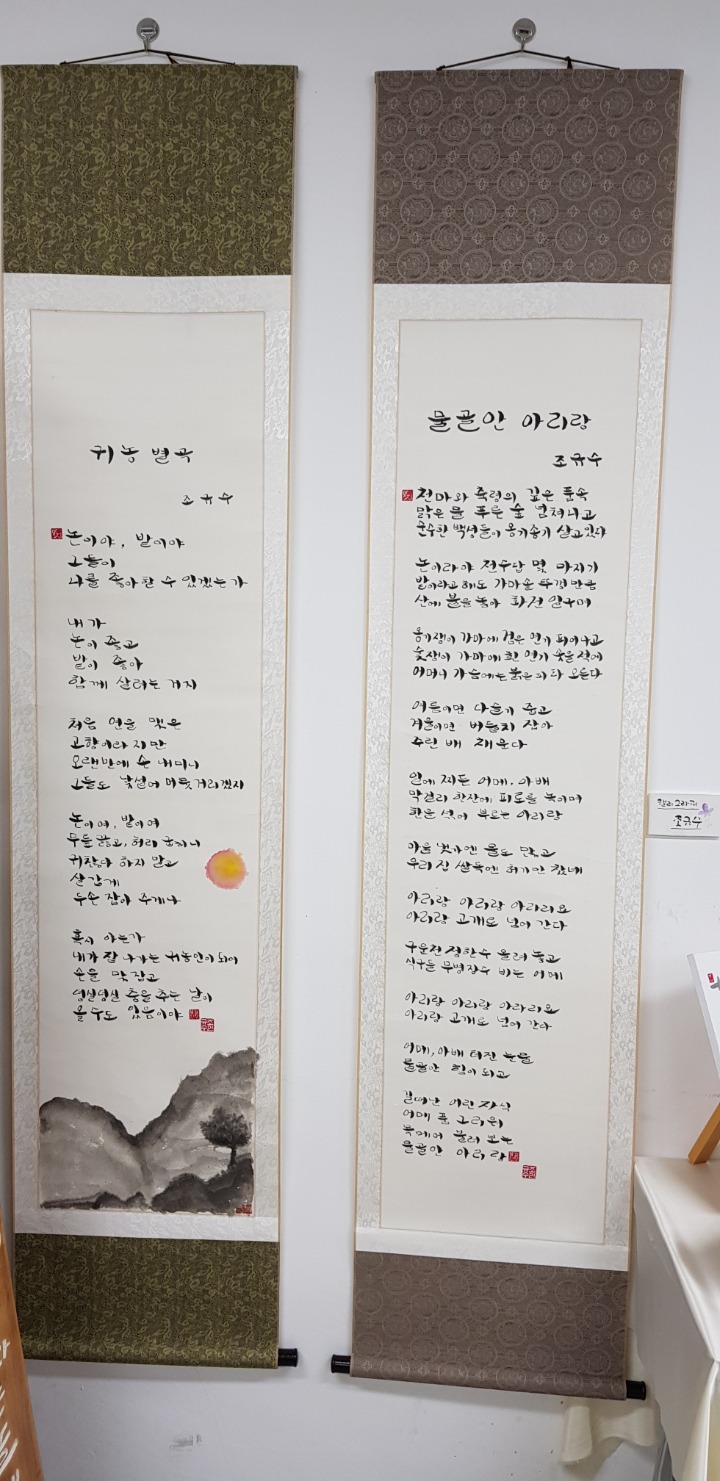 귀농 별곡
조규수
논이야, 밭이야
그들이
나를 좋아할 수 있겠는가
내가
논이 좋고
밭이 좋아
함께 살려는 거지
처음 연을 맺은
고향이라지만
오랜만에 손 내미니
그들도 낯설어 머뭇거리겠지
논이여, 밭이여
무릎 꿇고, 허리 굽히니
귀찮다 하지 말고
살갑게
두손 잡아 주게나
혹시 아는가
내가 잘 나가는 귀농인이 되어
손을 맞잡고
덩실덩실 춤을 추는 날이
올 수도 있음이야
물골안 아리랑
조규수
천마와 죽령의 깊은 품속
맑은 물 푸른 숲 넘쳐나고
순수한 백성들이 옹기종기 살고 있다
논이라야 전수답 몇 마지기
밭이라고 해도 가마솥 뚜껑만큼
산에 불을 놓아 화전 일구며
옹기쟁이 가마에 검은 연기 피어나고
숯쟁이 가마에 흰 연기 숯을 석에
어머니 가슴에는 붉은 피 다 오른다
여름이면 나물기 줍고
겨울이면 버들치 잡아
주린 배 채운다
일에 찌든 어메. 아배
막걸리 한잔에 피로를 녹이며
한을 섞어 부르는 아리랑
마을 빗가엔 물도 많고
우리 집 쌀독엔 허기만 찼네
아리랑 아리랑 아라리요
아리랑 고개로 넘어 간다
구운전 정한수 올려 놓고
식구들 무병장수 비는 어메
아리랑 아리랑 아라리요
아리랑 고개로 넘어 간다
어메, 아배 터진 눈물
물골안 힘이 되고
길떠난 어린 자식
어메 품 그리워
목메어 불러 보는
물골안 아리랑
캘리그라피
조규수